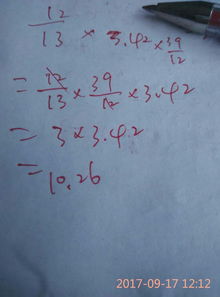 12/13 × 3.42 × 39/12
= 12/13 × 39/12 × 3.42
= 3 × 3.42
= 10.26
2017-09-17 12:12